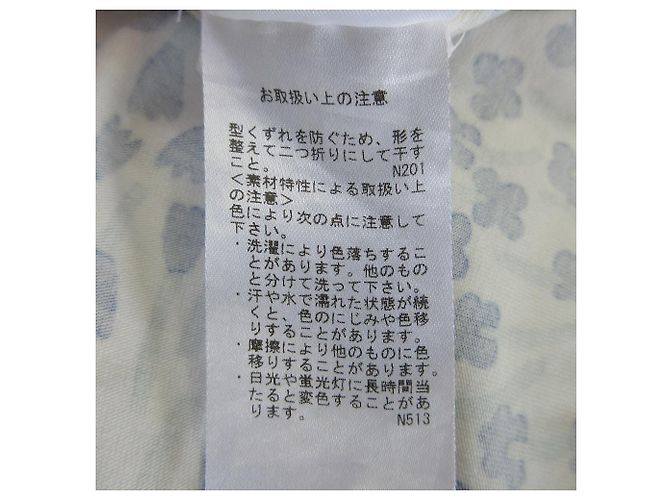 お取扱い上の注意
型くずれを防ぐため、形を
整えて二つ折りにして干す
こと。 N201
<素材特性による取扱い上
の注意>
色により次の点に注意して
下さい。
・洗濯により色落ちするこ
とがあります。他のもの
と分けて洗って下さい。
・汗や水で濡れた状態が続
くと、色のにじみや色移
りすることがあります。
・摩擦により他のものに色
移りすることがあります。
・日光や蛍光灯に長時間当
たると変色することがあ
ります。 N513